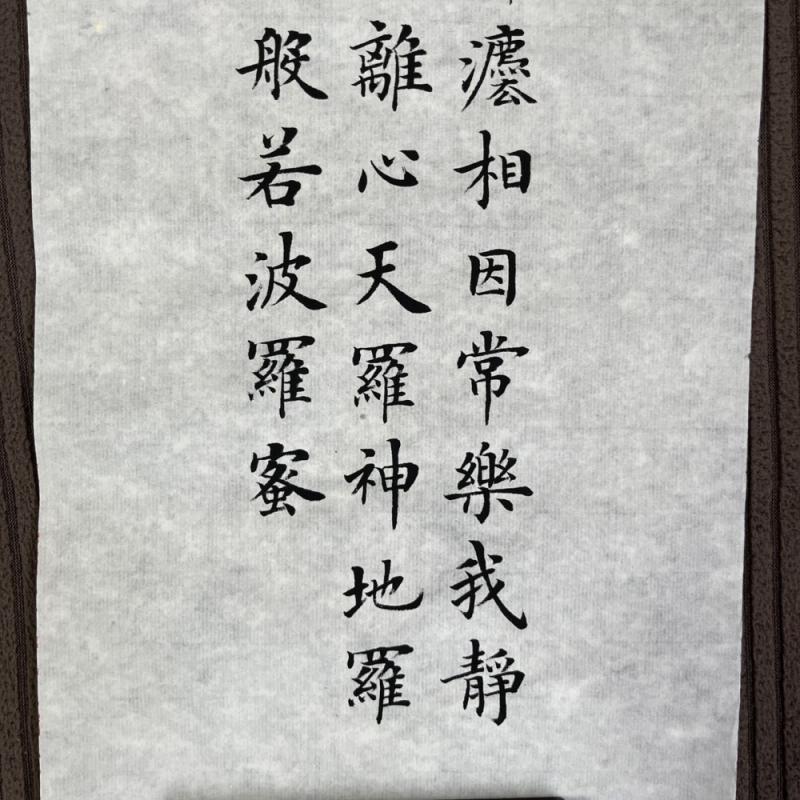 灋相因常樂我靜
離心天羅神地羅
般若波羅蜜